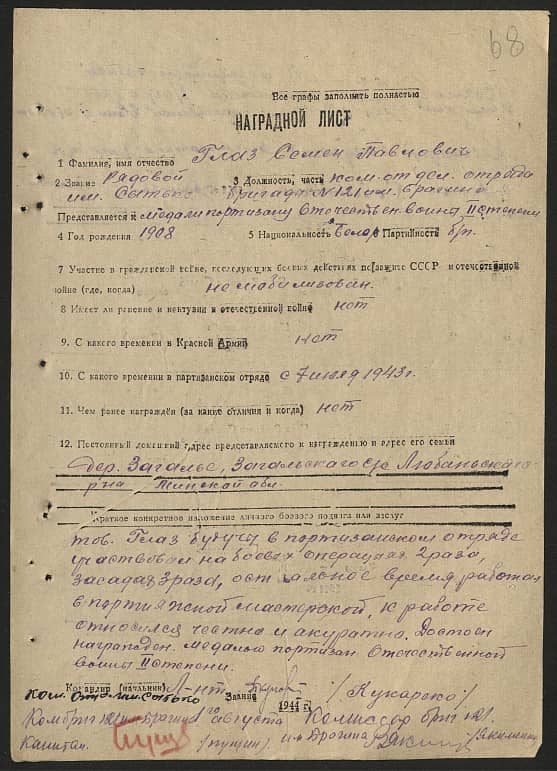 68
Все графы заполнять полностью
НАГРАДНОЙ ЛИСТ
1 Фамилие, имя отчество Глаз Семен Павлович
2 Звание Рядовой 3 Должность, часть ком. отдел. отряда
им. Сытько бригада №121 им. Брагина
Представляется к медали партизану Отечествен. войны II степени
4 Год рождения 1908 5 Национальность Белор Партийность б/п.
7 Участие в гражданской войне, последующих боевых действиях по защите СССР и отечественной
войне (где, когда) не мобилизован.
8 Имеет ли ранение и контузии в отечественной войне нет
9. С какого времени в Красной Армии нет
10. С какого времени в партизанском отряде с 7 1943 г.
11. Чем ранее награждён (за какие отличия и когда) нет
12. Постоянный домашний адрес представляемого к награждению и адрес его семьи
дер. Загалье, Загальского с/с Любаньского
р-на Минской обл.
Краткое конкретное изложение личного боевого подвига или заслуг
тов. Глаз будучи в партизанском отряде
участвовал на боевых операциях 2 раза,
засадах 3 раза, остальное время работал
в мастерской, к работе
относился честно и акуратно. Достоен
награжден. медалью партизан Отечественной
войны II степени.
Командир (начальник) Л-нт /Кухарско/
ком. отр. им. Сытько Звание 1944 г.
Комбриг 121 им. Брагина августа Комиссар бриг 121
Капитан (Пущин) им. Брагина /Якименко